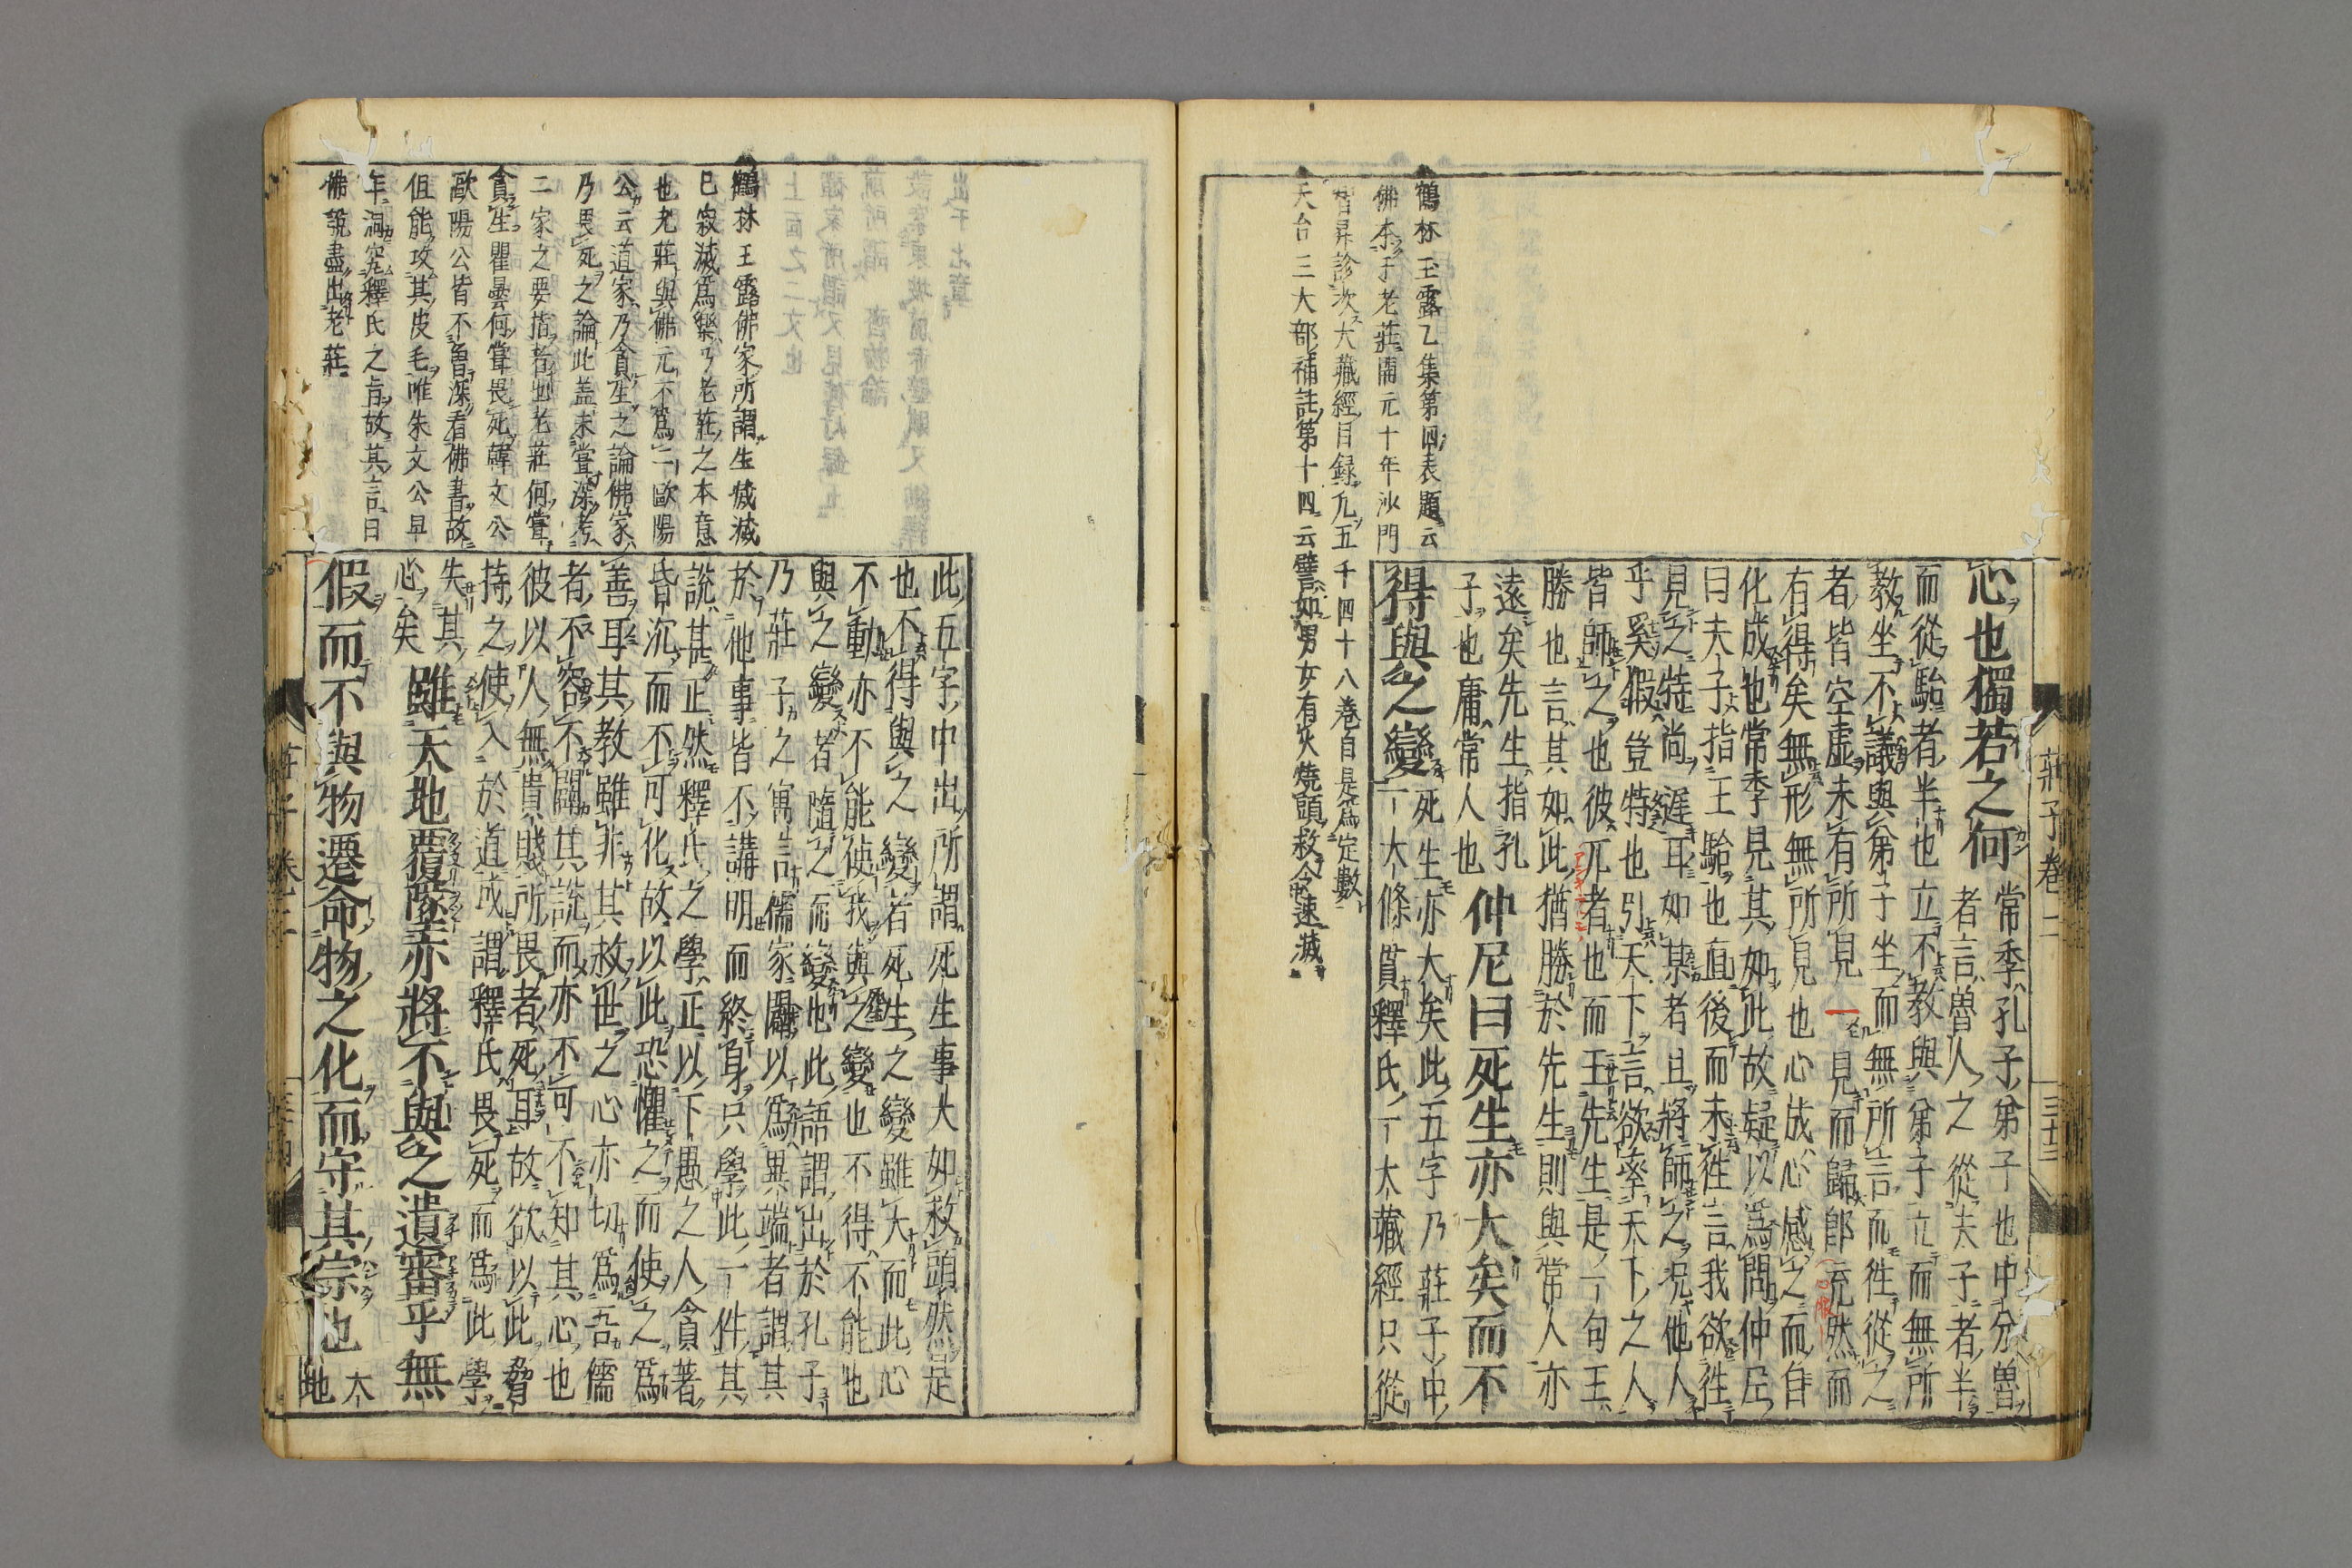 鶴林玉露乙集第四表題云
佛本于老莊開元十年沙門
智昇診次大藏經目録凢五千四十八巻自是爲定數
天台三大部補註第十四云譬如男女有火燒頭救令速滅
心也獨若之何常季孔子弟子也中分魯
者言魯人之從夫子者半
而從駘者半也立不教與弟子立而無所
教坐不議與弟子坐而無所言而徃從之
者皆空虚未有所見一見而歸即充然而
有得矣無形無所見也心成心感之而自
化成也常季見其如此故疑以爲問仲尼
曰夫子指王駘也直後而未徃言我欲徃
見之特尚遲耳如某者且將師之况他人
乎奚假豈特也引天下言欲率天下之人
皆師之也彼兀者也而王先生是一句王
勝也言其如此猶勝於先生則與常人亦
遠矣先生指孔
子也庸常人也仲尼曰死生亦大矣而不
得與之變死生亦大矣此五字乃莊子中
一大條貫釋氏一大藏經只從
莊子巻二
三十三
鶴林玉露佛家所謂生滅滅
已寂滅爲樂乃老莊之本意
也老莊與佛元不爲二歐陽
公云道家乃貪生之論佛家
乃畏死之論此盖未甞深考
二家之要指者也老莊何甞
貪生瞿曇何甞畏死韓文公
歐陽公皆不曽深看佛書故
但能攻其皮毛唯朱文公早
年洞究釋氏之㫖故其言曰
佛説盡出老莊
此五字中出所謂死生事大如救頭然皆是
也不得與之變者死生之變雖大而此心
不動亦不能使我與之變也不得不能也
與之變者隨之而變也此語謂出於孔子
乃莊子之寓言儒家闢以爲異端者謂其
於他事皆不講明而終身只學此一件其
説甚正然釋氏之學正以下愚之人貪著
昏沉而不可化故以此恐懼之而使之爲
善耳其教雖非其救世之心亦切爲吾儒
者不容不闢其説而亦不可不知其心也
彼以人無貴賤所畏者死耳故欲以此脅
持之使入於道或謂釋氏畏死而爲此學
失其
心矣雖天地覆墜亦將不與之遺審乎無
假而不與物遷命物之化而守其宗也天
地
莊子巻二
三十四